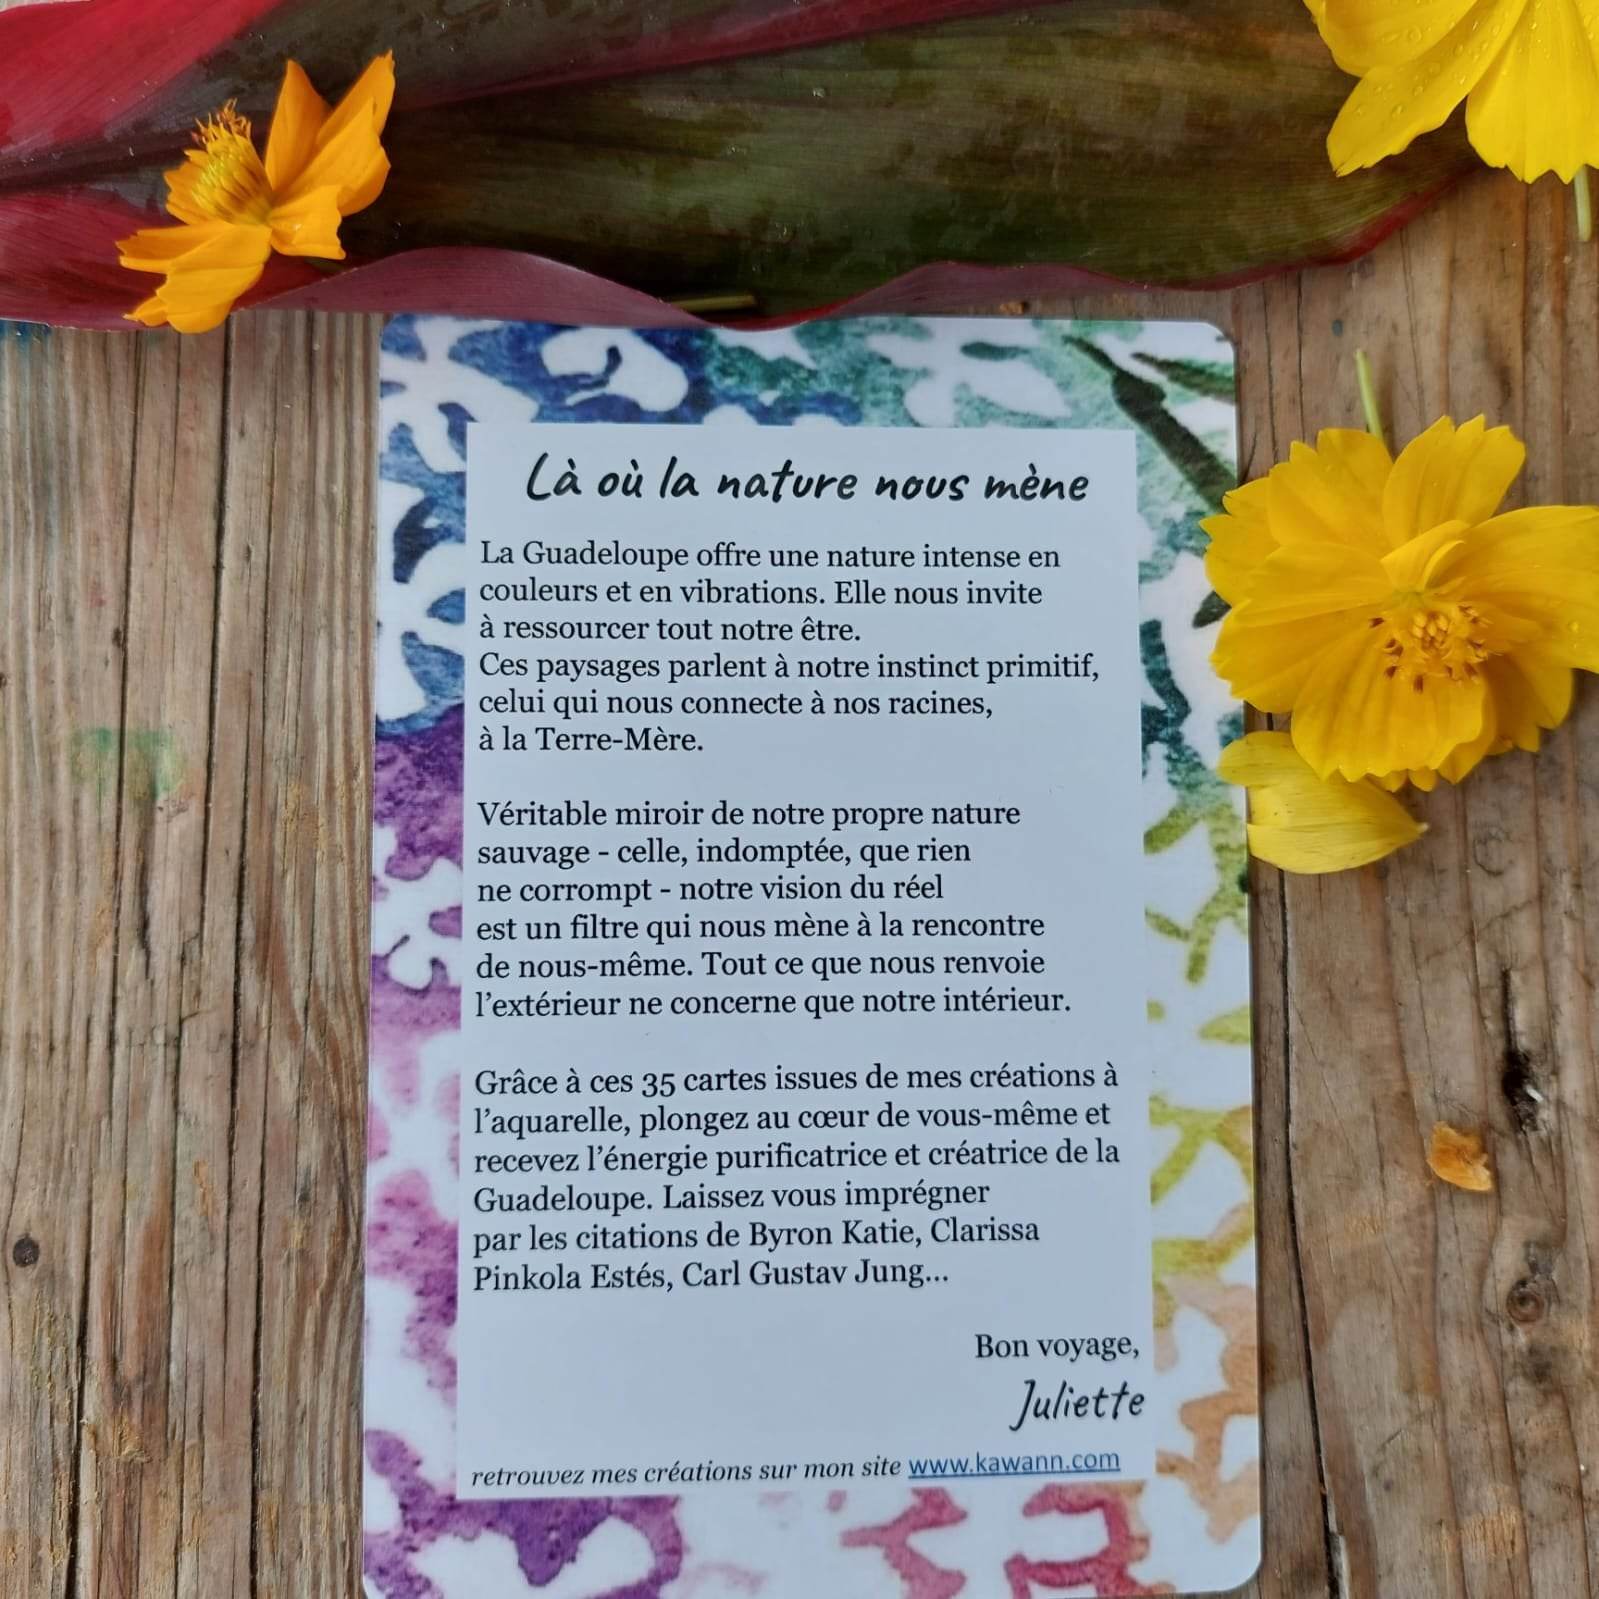 Là où la nature nous mène
La Guadeloupe offre une nature intense en
couleurs et en vibrations. Elle nous invite
à ressourcer tout notre être.
Ces paysages parlent à notre instinct primitif,
celui qui nous connecte à nos racines,
à la Terre-Mère.
Véritable miroir de notre propre nature
sauvage - celle, indomptée, que rien
ne corrompt - notre vision du réel
est un filtre qui nous mène à la rencontre
de nous-même. Tout ce que nous renvoie
l'extérieur ne concerne que notre intérieur.
Grâce à ces 35 cartes issues de mes créations à
l'aquarelle, plongez au cœur de vous-même et
recevez l'énergie purificatrice et créatrice de la
Guadeloupe. Laissez vous imprégner
par les citations de Byron Katie, Clarissa
Pinkola Estés, Carl Gustav Jung...
Bon voyage,
Juliette
retrouvez mes créations sur mon site www.kawann.com